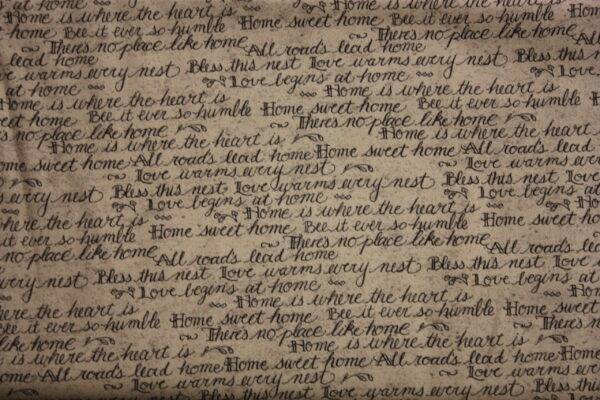 at home Home is where the heart is Home is where the heart
home Bee it ever so humble Home sweet home Bee it ever so humble Home
There's no place like home There's no place like home
lead home All roads lead home All
Love warms every nest Bless this nest Love warms every nest Bless this
at home Love begins at home Love
Home is where the heart is Home is where the heart is
sweet home Bee it ever so humble Home sweet home Bee it ever so humble Home
There's no place like home There's no place like home
Home is where the heart is Home is where the heart
Home sweet home All roads lead home Home sweet home All roads lead
Love warms every nest Love warms
every nest Bless this nest Love warms every nest Bless this nest Love
Love begins at home Love begins at
where the heart is Home is where the heart is Ho
it ever so humble Home sweet home Bee it ever so humble Home sweet ho
no place like home There's no place like home
All roads lead home All roads lea
warms every nest Bless this nest Love warms every nest Bless this nest Love
Love begins at home Love begins at
is where the heart is Home is where the heart is Hom
Bee it ever so humble Home sweet home Bee it ever so humble Home sweet
like home There's no place like home There's n
is where the heart is Home is where the heart is
home All roads lead home Home sweet home All roads lead home Home
Love warms every nest Love warms every
nest Bless this nest Love warms every nest Bless this nest